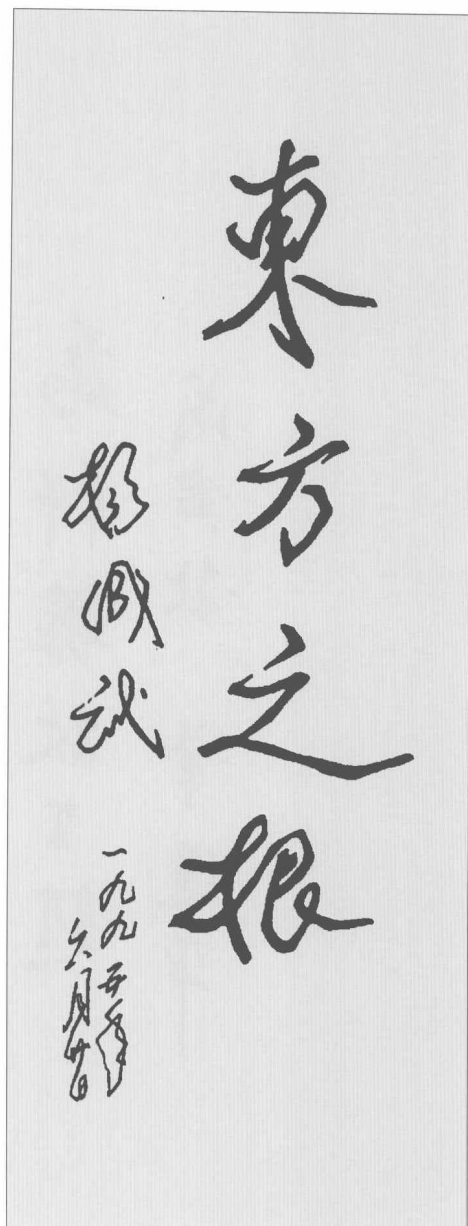 東方之根
楊成武
一九九五年
六月廿日